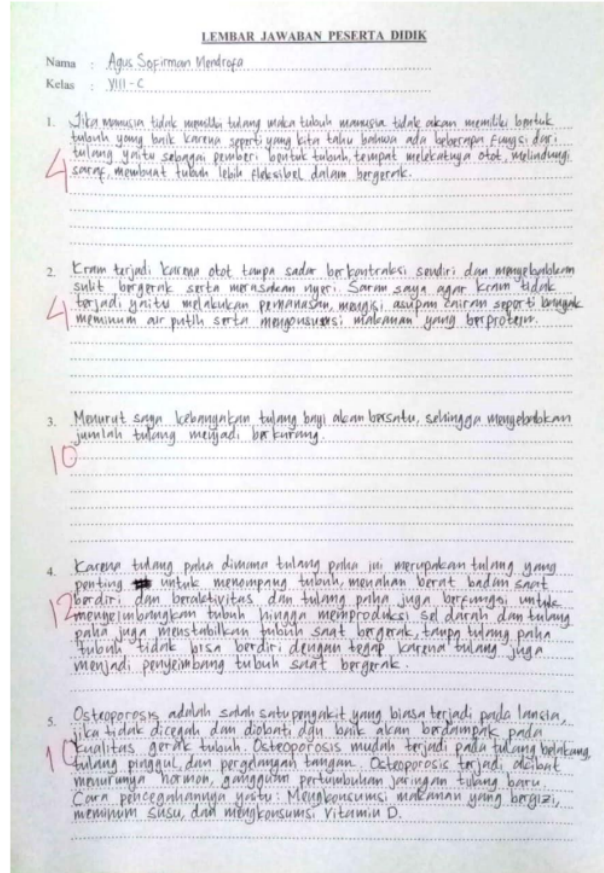 LEMBAR JAWABAN PESERTA DIDIK
Nama : Agus Sofirman Mendrofa
Kelas : VIII - C
1. Jika manusia tidak memiliki tulang maka tubuh manusia tidak akan memiliki bentuk
tubuh yang baik karena seperti yang kita tahu bahwa ada beberapa fungsi dari
tulang yaitu sebagai pemberi bentuk tubuh, tempat melekatnya otot, melindungi
saraf, membuat tubuh lebih fleksibel dalam bergerak.
4
2. Kram terjadi karena otot tanpa sadar berkontraksi sendiri dan menyebabkan
sulit bergerak serta merasakan nyeri. Saran saya agar kram tidak
terjadi yaitu melakukan pemanasan, mengisi asupan cairan seperti banyak
meminum air putih serta mengonsumsi makanan yang berprotein.
4
3. Menurut saya kebanyakan tulang bayi akan bersatu, sehingga menyebabkan
jumlah tulang menjadi berkurang.
10
4. Karena tulang paha dimana tulang paha ini merupakan tulang yang
penting untuk menompang tubuh, menahan berat badan saat
berdiri dan beraktivitas dan tulang paha juga berfungsi untuk
12
menyeimbangkan tubuh hingga memproduksi sel darah dan tulang
paha juga menstabilkan tubuh saat bergerak, tanpa tulang paha
tubuh tidak bisa berdiri dengan tegap karena tulang juga
menjadi penyeimbang tubuh saat bergerak.
5. Osteoporosis adalah salah satu penyakit yang biasa terjadi pada lansia,
jika tidak dicegah dan diobati dgn baik akan berdampak pada
kualitas gerak tubuh. Osteoporosis mudah terjadi pada tulang belakang,
10
tulang pinggul, dan pergelangan tangan. Osteoporosis terjadi akibat
menurunya hormon, gangguan pertumbuhan jaringan tulang baru.
Cara pencegahannya yaitu: Mengkonsumsi makanan yang bergizi,
meminum susu, dan mengkonsumsi Vitamin D.